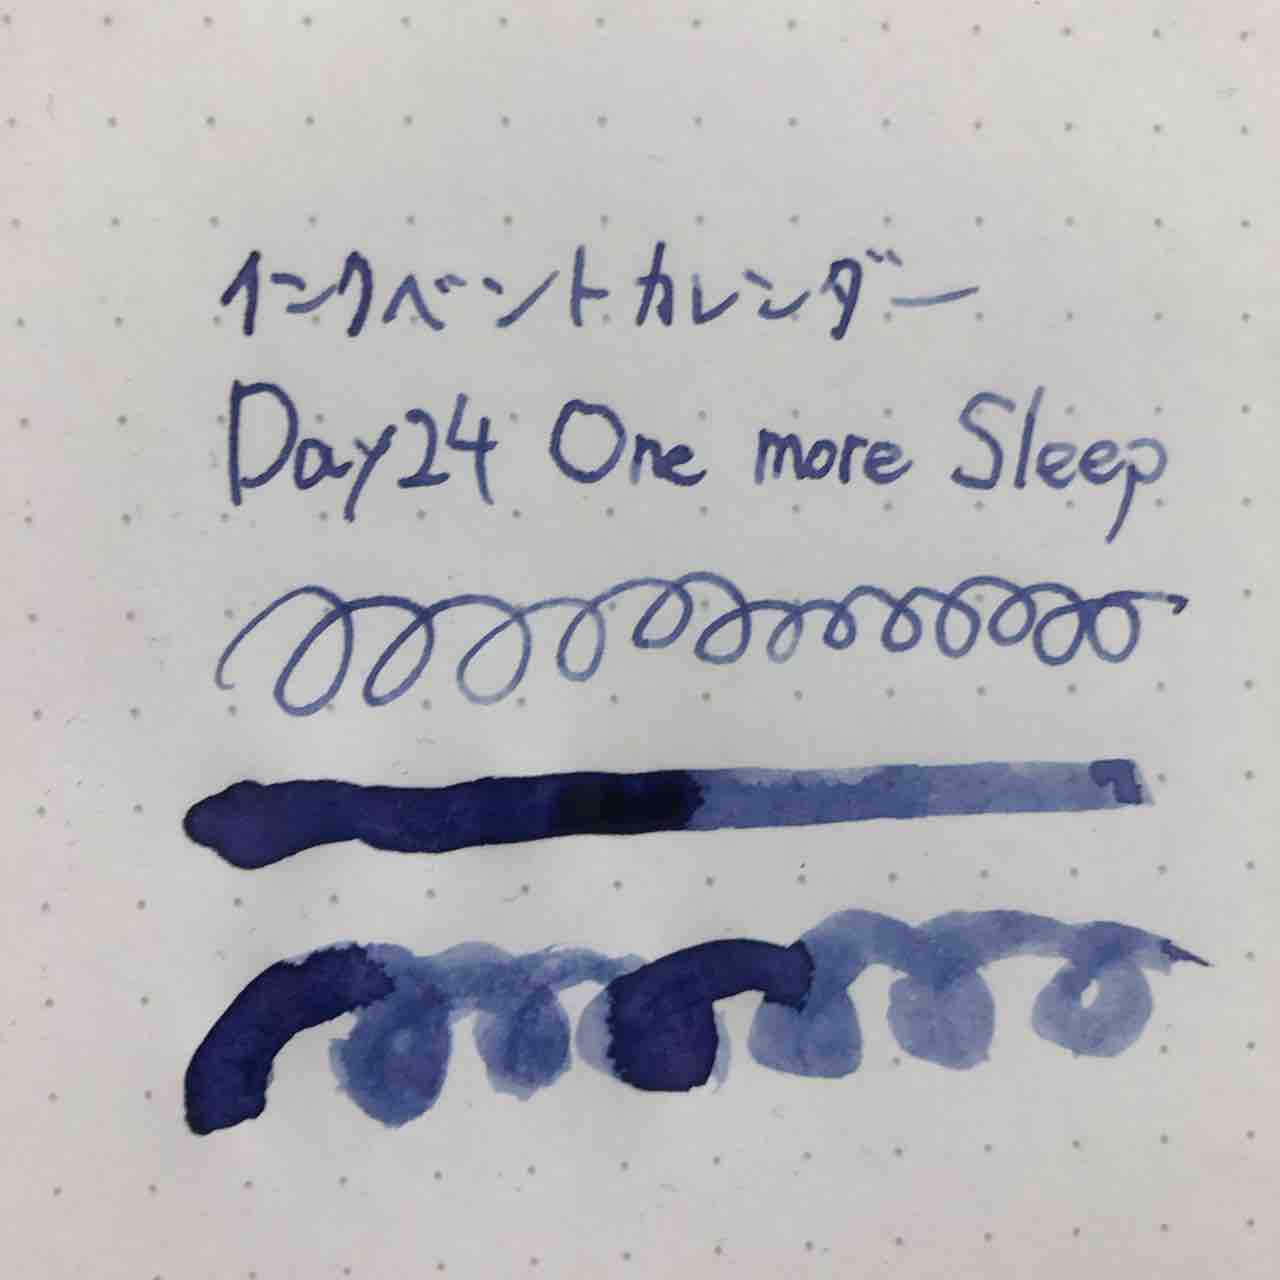 インクベントカレンダー
Day24 One more Sleep